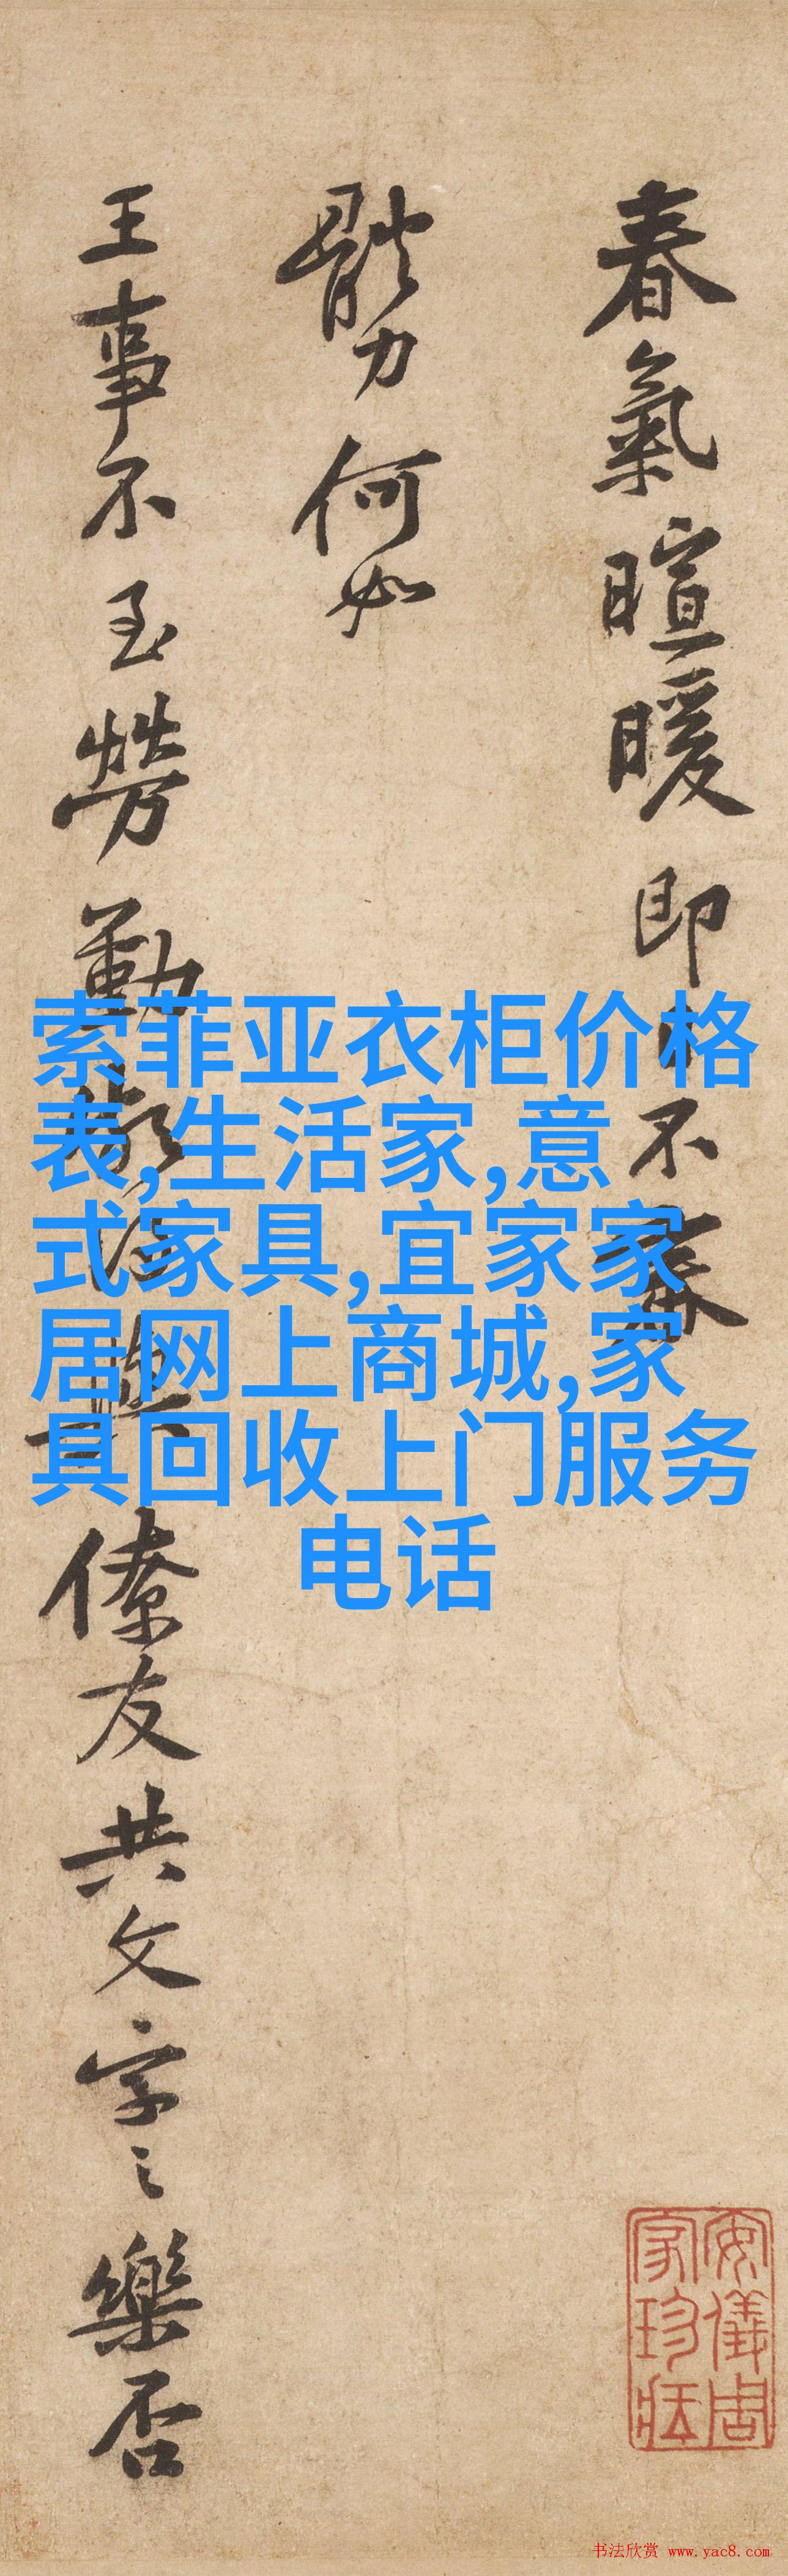 春氣暄暖即日不審
體力何如
王事不至勞勤
僚友共文字之樂否
索菲亚衣柜价格
表,生活家,意
式家具,宜家家
居网上商城,家
具回收上门服务
电话
安儀周
家珍藏
书法欣赏 www.yac8.com